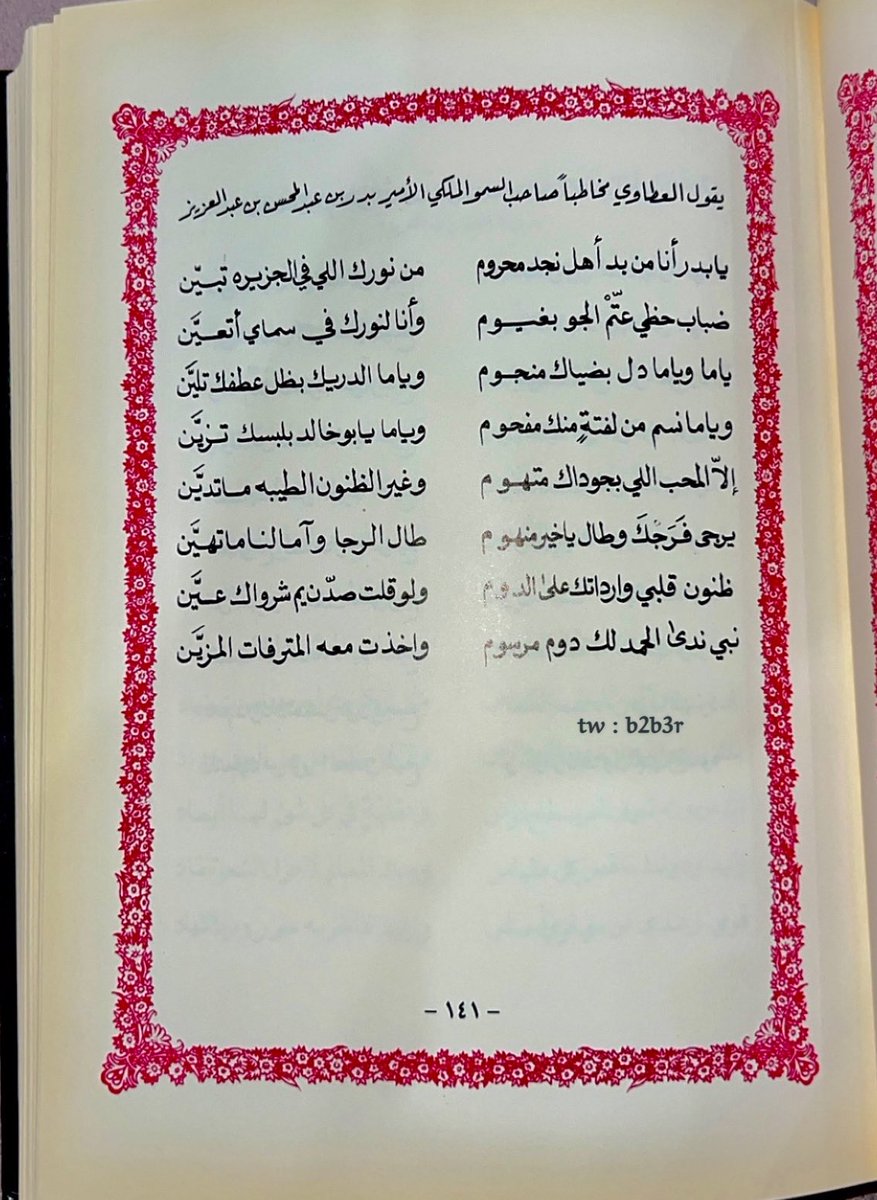 يقول العطاوي مخاطباً صاحب السمو الملكي الأمير بدر بن عبد المحسن بن عبد العزيز
يا بدر أنا من بد أهل نجد محروم من نورك اللي في الجزيره تبيّن
ضباب حظي عتّمْ الجو بغيوم وأنا لنورك في سماي أتعيَّن
ياما وياما دل بضياك منجوم وياما الدريك بظل عطفك تليَّن
وياما نسم من لفتةٍ منك مفحوم وياما يابو خالد بلبسك تزيَّن
إلاّ المحب اللي بجوداك متهوم وغير الظنون الطيبه ماتديَّن
يرجى فَرَجْكَ وطال ياخير منهوم طال الرجا وآمالنا ماتهيَّن
ظنون قلبي وارداتك على الدوم ولو قلت صدّن يم شرواك عيَّن
نبي ندى الحمد لك دوم مرسوم واخذت معه المترفات المزيَّن
tw : b2b3r
- ١٤١ -